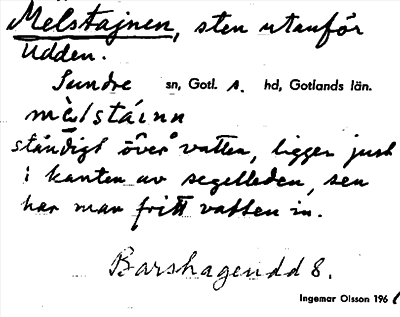 Melstajnen, sten utanför
Udden.
Sundre sn, Gotl. s. hd, Gotlands län.
mèlstáinn
ständigt över vatten, ligger just
i kanten av segelleden, sen
har man fritt vatten in.
Barshageudd 8.
Ingemar Olsson 196